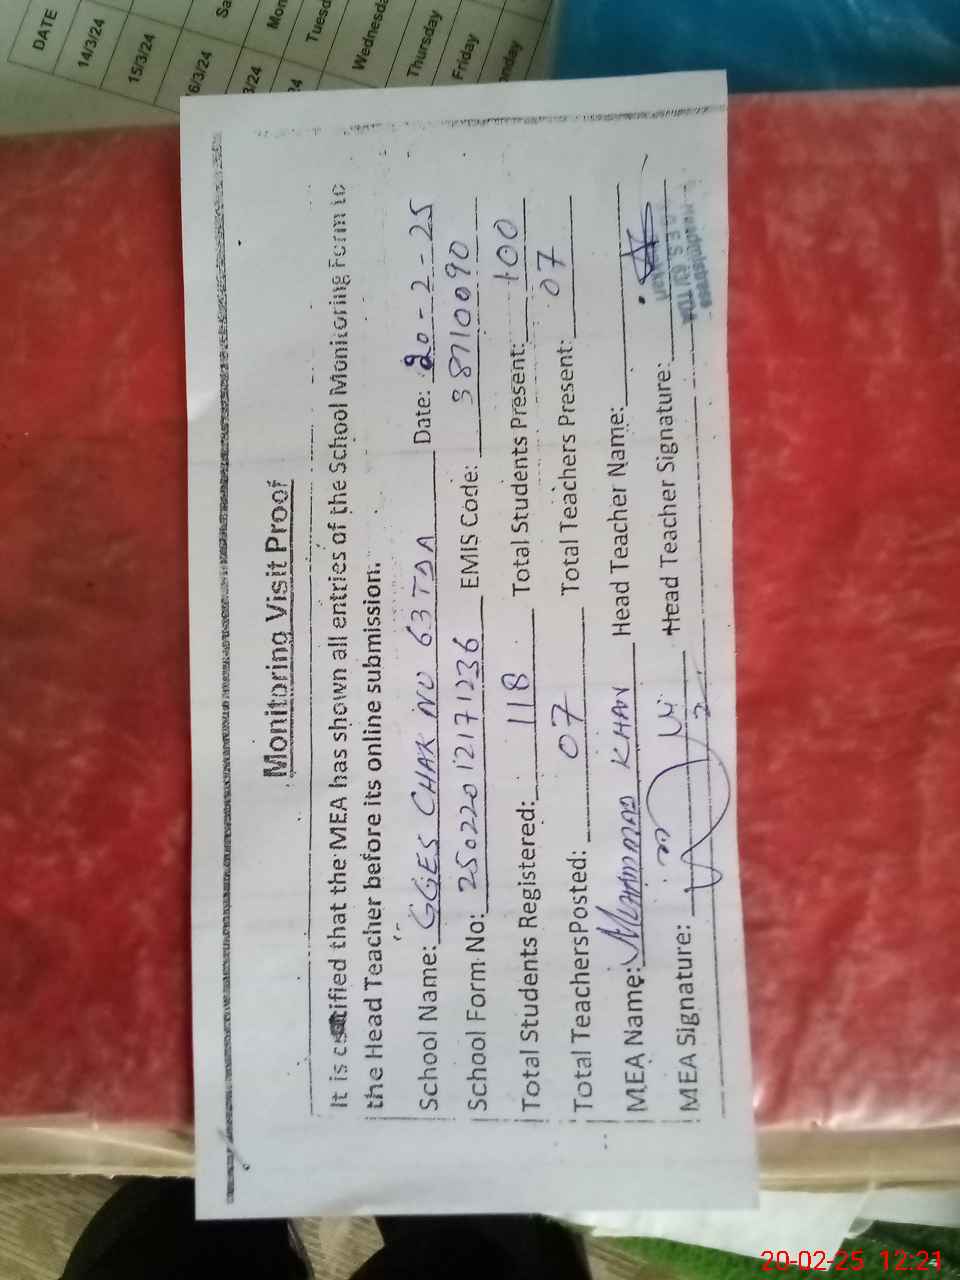 DATE
14/3/24
15/3/24
16/3/24
3/24
24
Sa
Mon
Tuesd
Wednesda
Thursday
Friday
onday
Monitoring Visit Proof
It is certified that the MEA has shown all entries of the School Monitoring Form to
the Head Teacher before its online submission.
School Name: GGES CHAK NO 63 TDA Date: 20-2-25
School Form No: 250220121717236 EMIS Code: 38710090
Total Students Registered: 118 Total Students Present: 100
Total TeachersPosted: 07 Total Teachers Present: 07
MEA Name: MUHAMMAD KHAN Head Teacher Name:
MEA Signature: Head Teacher Signature:
Headmistress
63/TDA
20-02-25 12:21